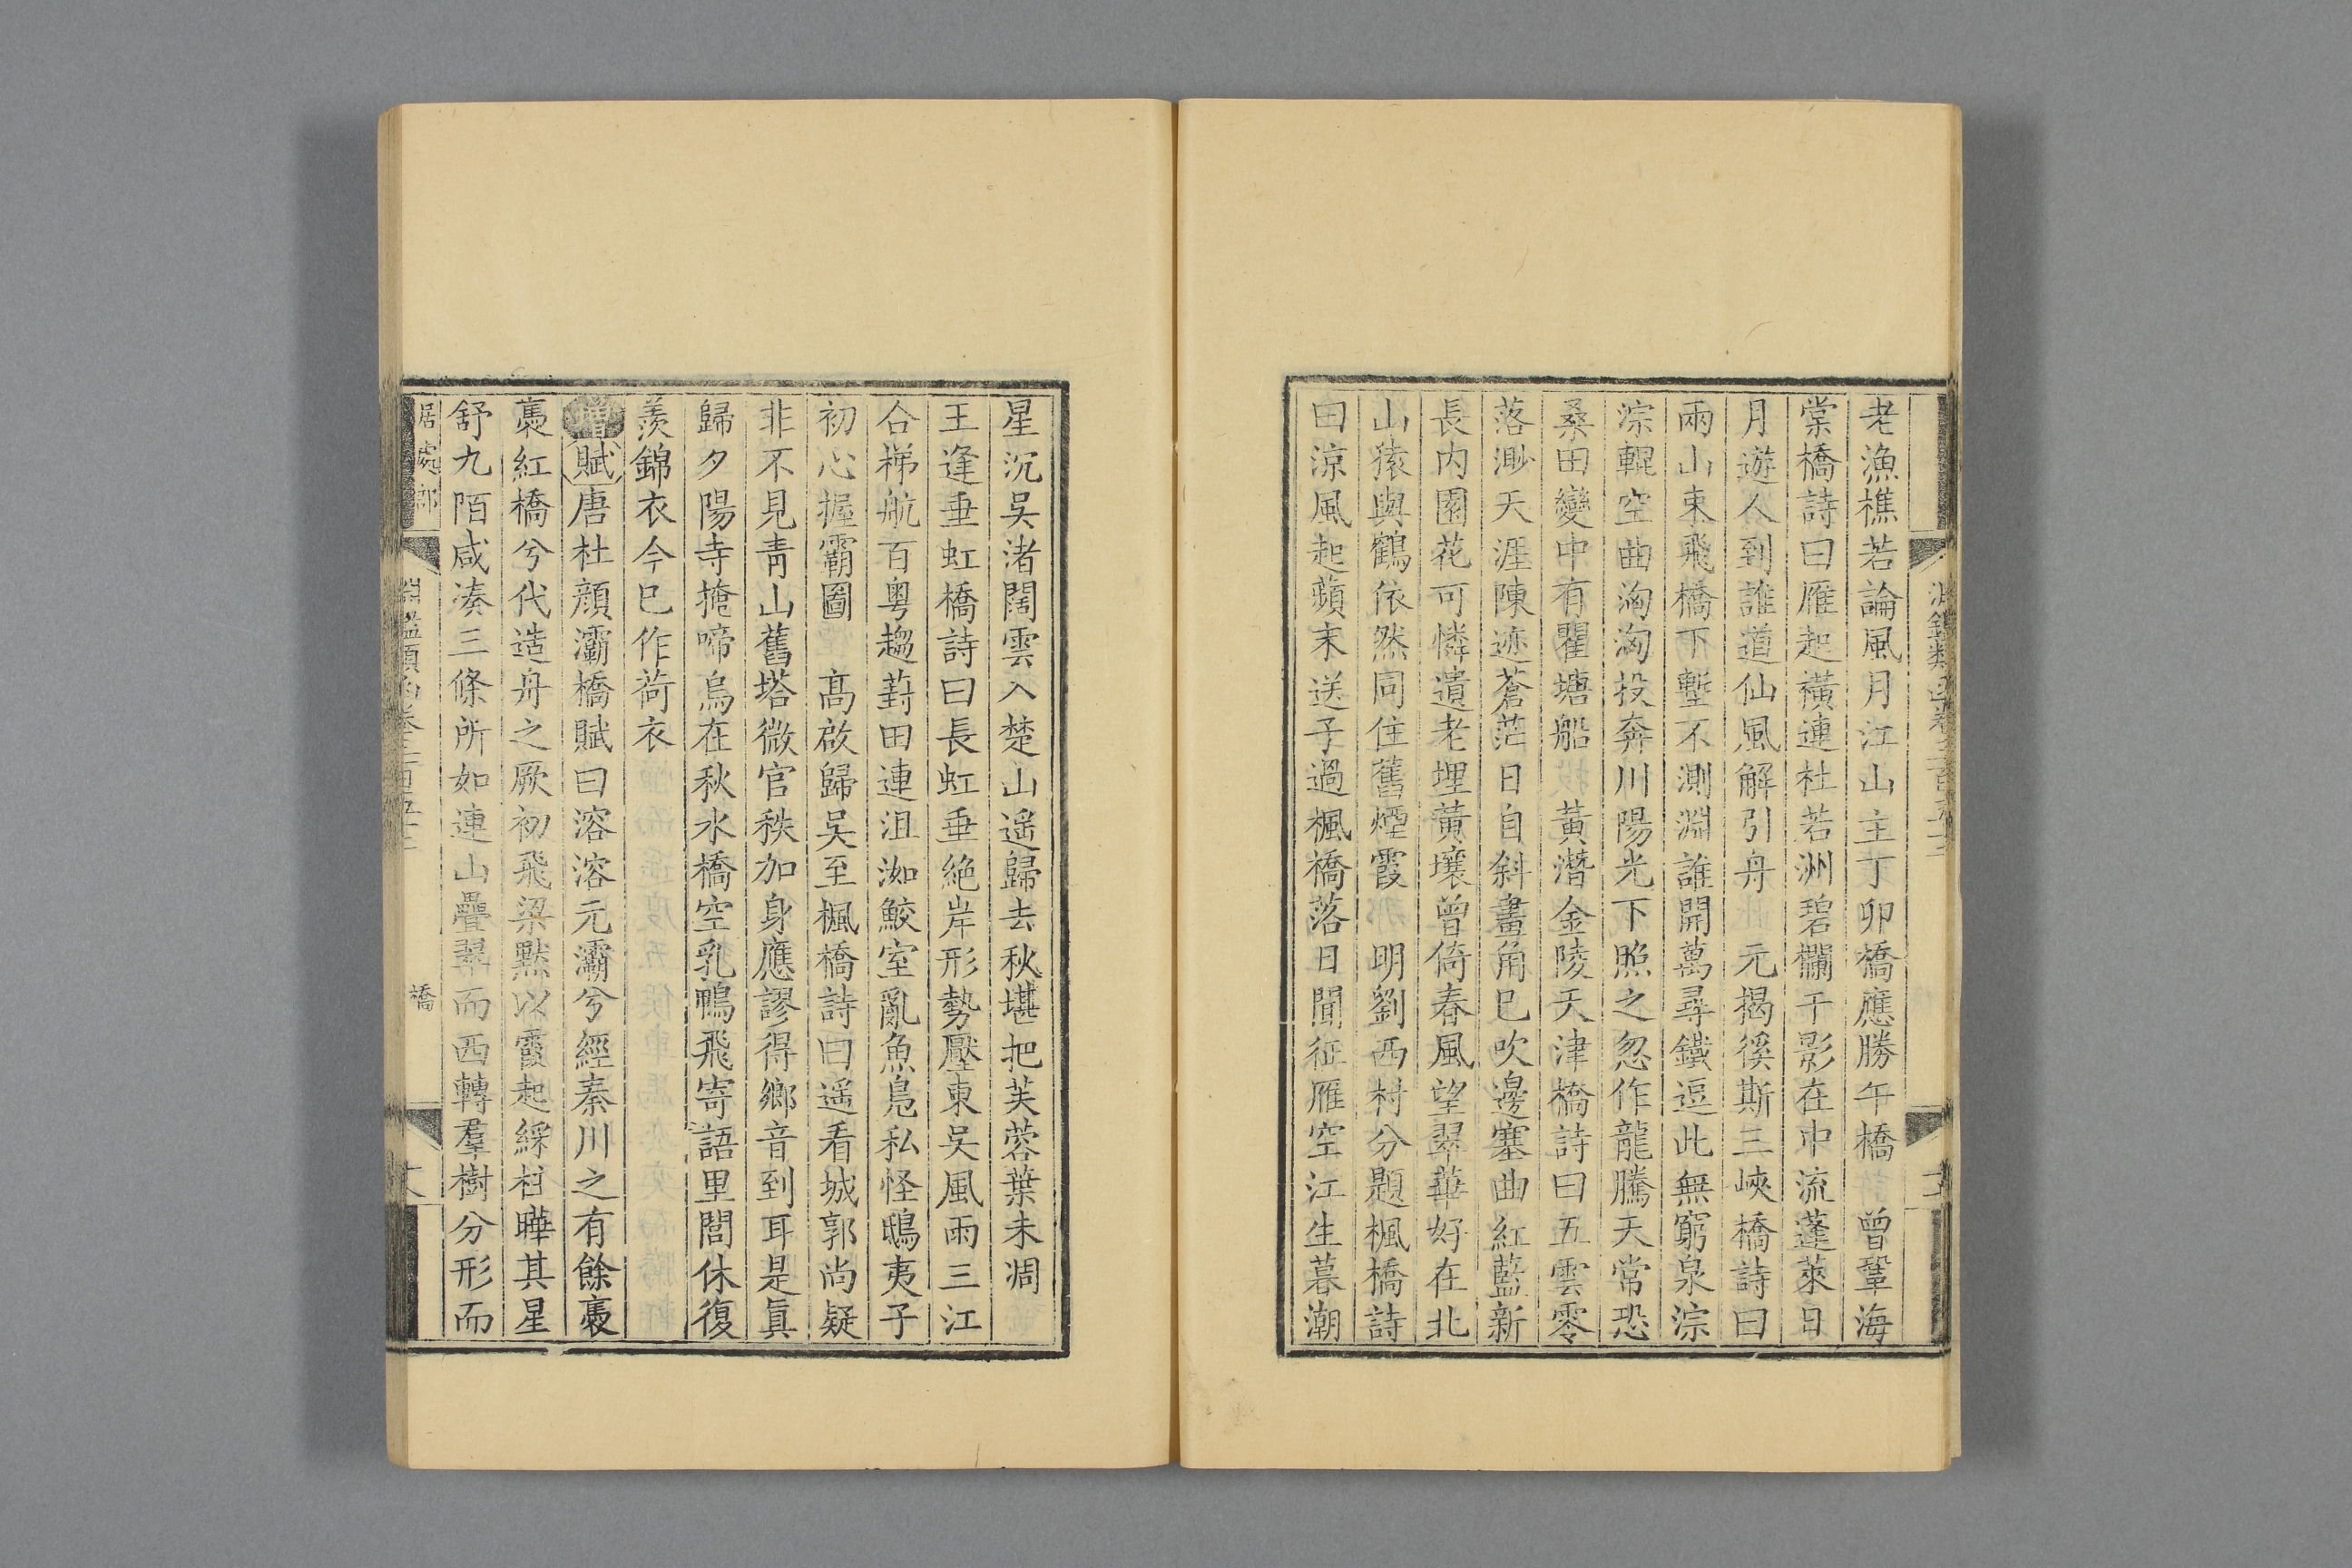 老漁樵若論風月江山主丁卯橋應勝午橋 曾鞏海
棠橋詩曰雁起橫連杜若洲碧欄干影在中流蓬萊日
月遊人到誰道仙風解引舟 元揭徯斯三峽橋詩曰
兩山束飛橋下塹不測淵誰開萬尋鐵逗此無窮泉淙
淙輥空曲洶洶投奔川陽光下照之忽作龍騰天常恐
桑田變中有瞿塘船 黃潛金陵天津橋詩曰五雲零
落渺天涯陳迹蒼茫日自斜畫角巳吹邊塞曲紅藍新
長內園花可憐遺老埋黃壤曾倚春風望翠華好在北
山猿與鶴依然同住舊煙霞 明劉西村分題楓橋詩
曰涼風起蘋末送子過楓橋落日聞征雁空江生暮潮
星沉吳渚闊雲入楚山遥歸去秋堪把芙蓉葉未凋
王逢垂虹橋詩曰長虹垂絕岸形勢壓東吳風雨三江
合梯航百粵趨葑田連沮洳鮫室亂魚鳧私怪鴟夷子
初心握霸圖 高啟歸吳至楓橋詩曰遥看城郭尚疑
非不見青山舊塔微官秩加身應謬得鄉音到耳是眞
歸夕陽寺掩啼烏在秋水橋空乳鴨飛寄語里閭休復
羨錦衣今巳作荷衣
增賦唐杜顏灞橋賦曰溶溶元灞兮經秦川之有餘裊
裊紅橋兮代造舟之厥初飛梁黙以霞起綵柱曄其星
舒九陌咸湊三條所如連山疊翠而西轉羣樹分形而
居處部
淵鑑類函卷三百五十
橋